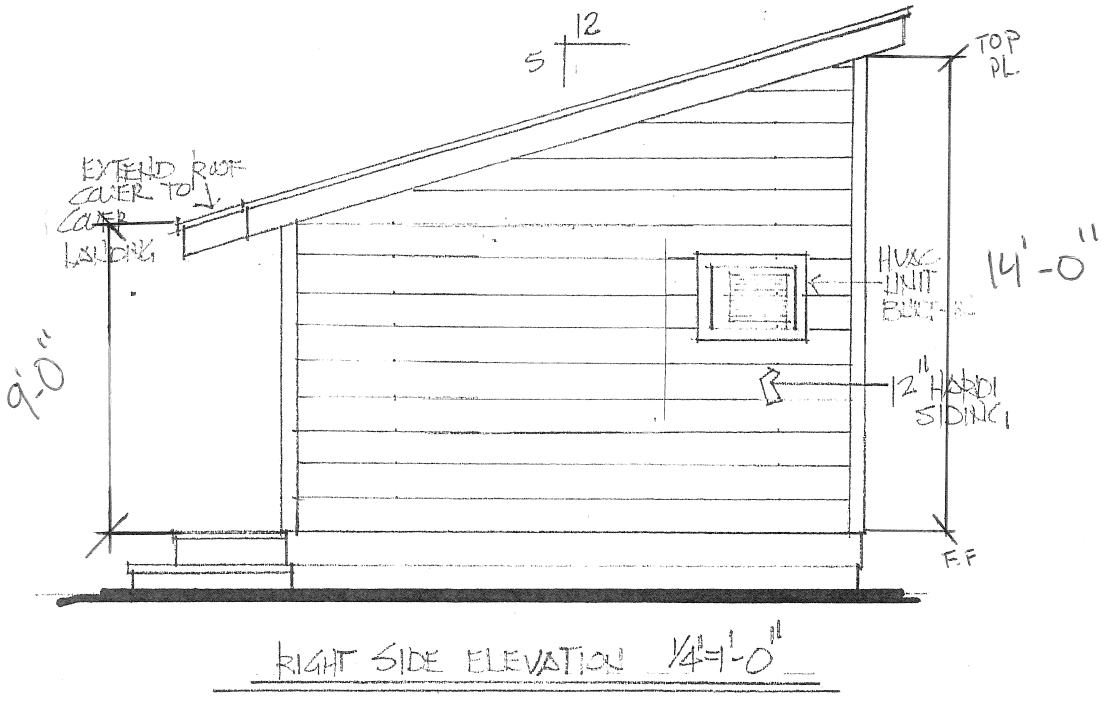 12
5
TOP
PL.
EXTEND ROOF
COVER TO
COVER
LANDING
HVAC
UNIT
14'-0"
9'-0"
12" HARDI
SIDING
F.F
RIGHT SIDE ELEVATION 1/4"=1'-0"